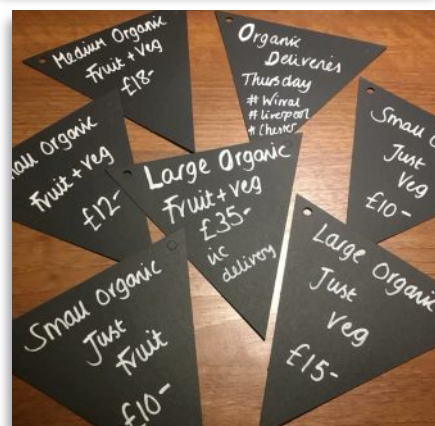 Medium Organic
Fruit + Veg
£18-
Organic
Deliveries
Thursday
# Wirral
# Liverpool
# Chester
Small Organic
Fruit + veg
£12-
Large Organic
Fruit + veg
£35-
ic
delivery
Small O
Just
Veg
£10-
Small Organic
Just
Fruit
£10-
Large Organic
Just
Veg
£15-